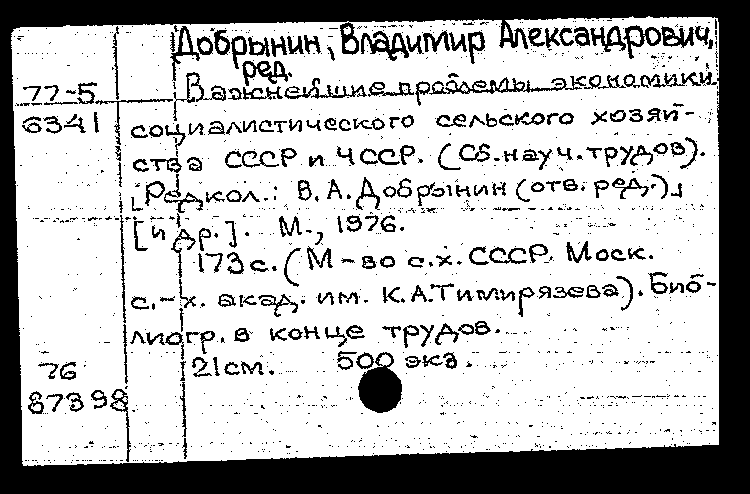 Добрынин, Владимир Александрович,
ред.
77-5 Важнейшие проблемы экономики
6341 социалистического сельского хозяй-
ства СССР и ЧССР. (Сб.науч.трудов).
[Редкол.: В.А.Добрынин (отв. ред.)]
[и др.]. М., 1976.
173 с. (М-во с.х. СССР. Моск.
с.-х. акад. им. К.А.Тимирязева). Биб-
лиогр. в конце трудов.
76 21см. 500 экз.
87398